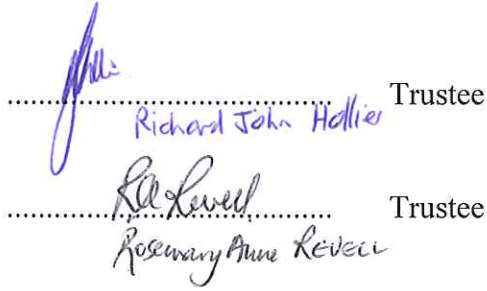 .................................................. Trustee
Richard John Hollier
RA Revell
.................................................. Trustee
Rosemary Anne REVELL